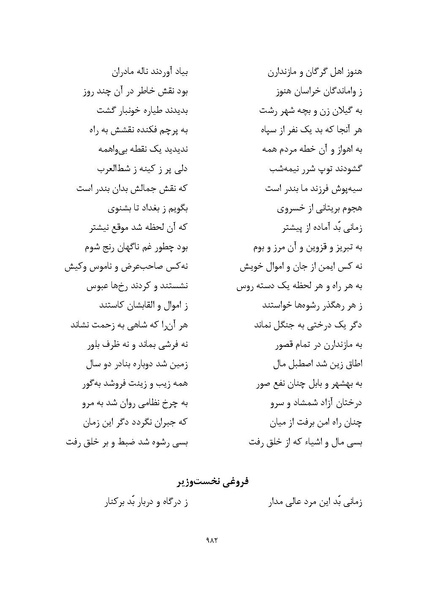 هنوز اهل گرگان و مازندارن بیاد آوردند ناله مادران
ز واماندگان خراسان هنوز بود نقش خاطر در آن چند روز
به گیلان زن و بچه شهر رشت بدیدند طیاره خونبار گشت
هر آنجا که بد یک نفر از سپاه به پرچم فکنده نقشش به راه
به اهواز و آن خطه مردم همه ندیدید یک نقطه بی‌واهمه
گشودند توپ شرر نیمه‌شب دلی پر ز کینه ز شط‌العرب
سیه‌پوش فرزند ما بندر است که نقش جمالش بدان بندر است
هجوم بریتانی از خسروی بگویم ز بغداد تا بشنوی
زمانی بُد آماده از پیشتر که آن لحظه شد موقع نیشتر
به تبریز و قزوین و آن مرز و بوم بود چطور غم ناگهان رنج شوم
نه کس ایمن از جان و اموال خویش نه‌کس صاحب‌عرض و ناموس وکیش
به هر راه و هر لحظه یک دسته روس نشستند و کردند رخ‌ها عبوس
ز هر رهگذر رشوه‌ها خواستند ز اموال و القابشان کاستند
دگر یک درختی به جنگل نماند هر آن‌را که شاهی به زحمت نشاند
به مازندارن در تمام قصور نه فرشی بماند و نه ظرف بلور
اطاق زین شد اصطبل مال زمین شد دوباره بنادر دو سال
به بهشهر و بابل چنان نفع صور همه زیب و زینت فروشد به‌گور
درختان آزاد شمشاد و سرو به چرخ نظامی روان شد به مرو
چنان راه امن برفت از میان که جبران نگردد دگر این زمان
بسی مال و اشیاء که از خلق رفت بسی رشوه شد ضبط و بر خلق رفت
فروغی نخست‌وزیر
زمانی بُد این مرد عالی مدار ز درگاه و دربار بُد برکنار
۹۸۲